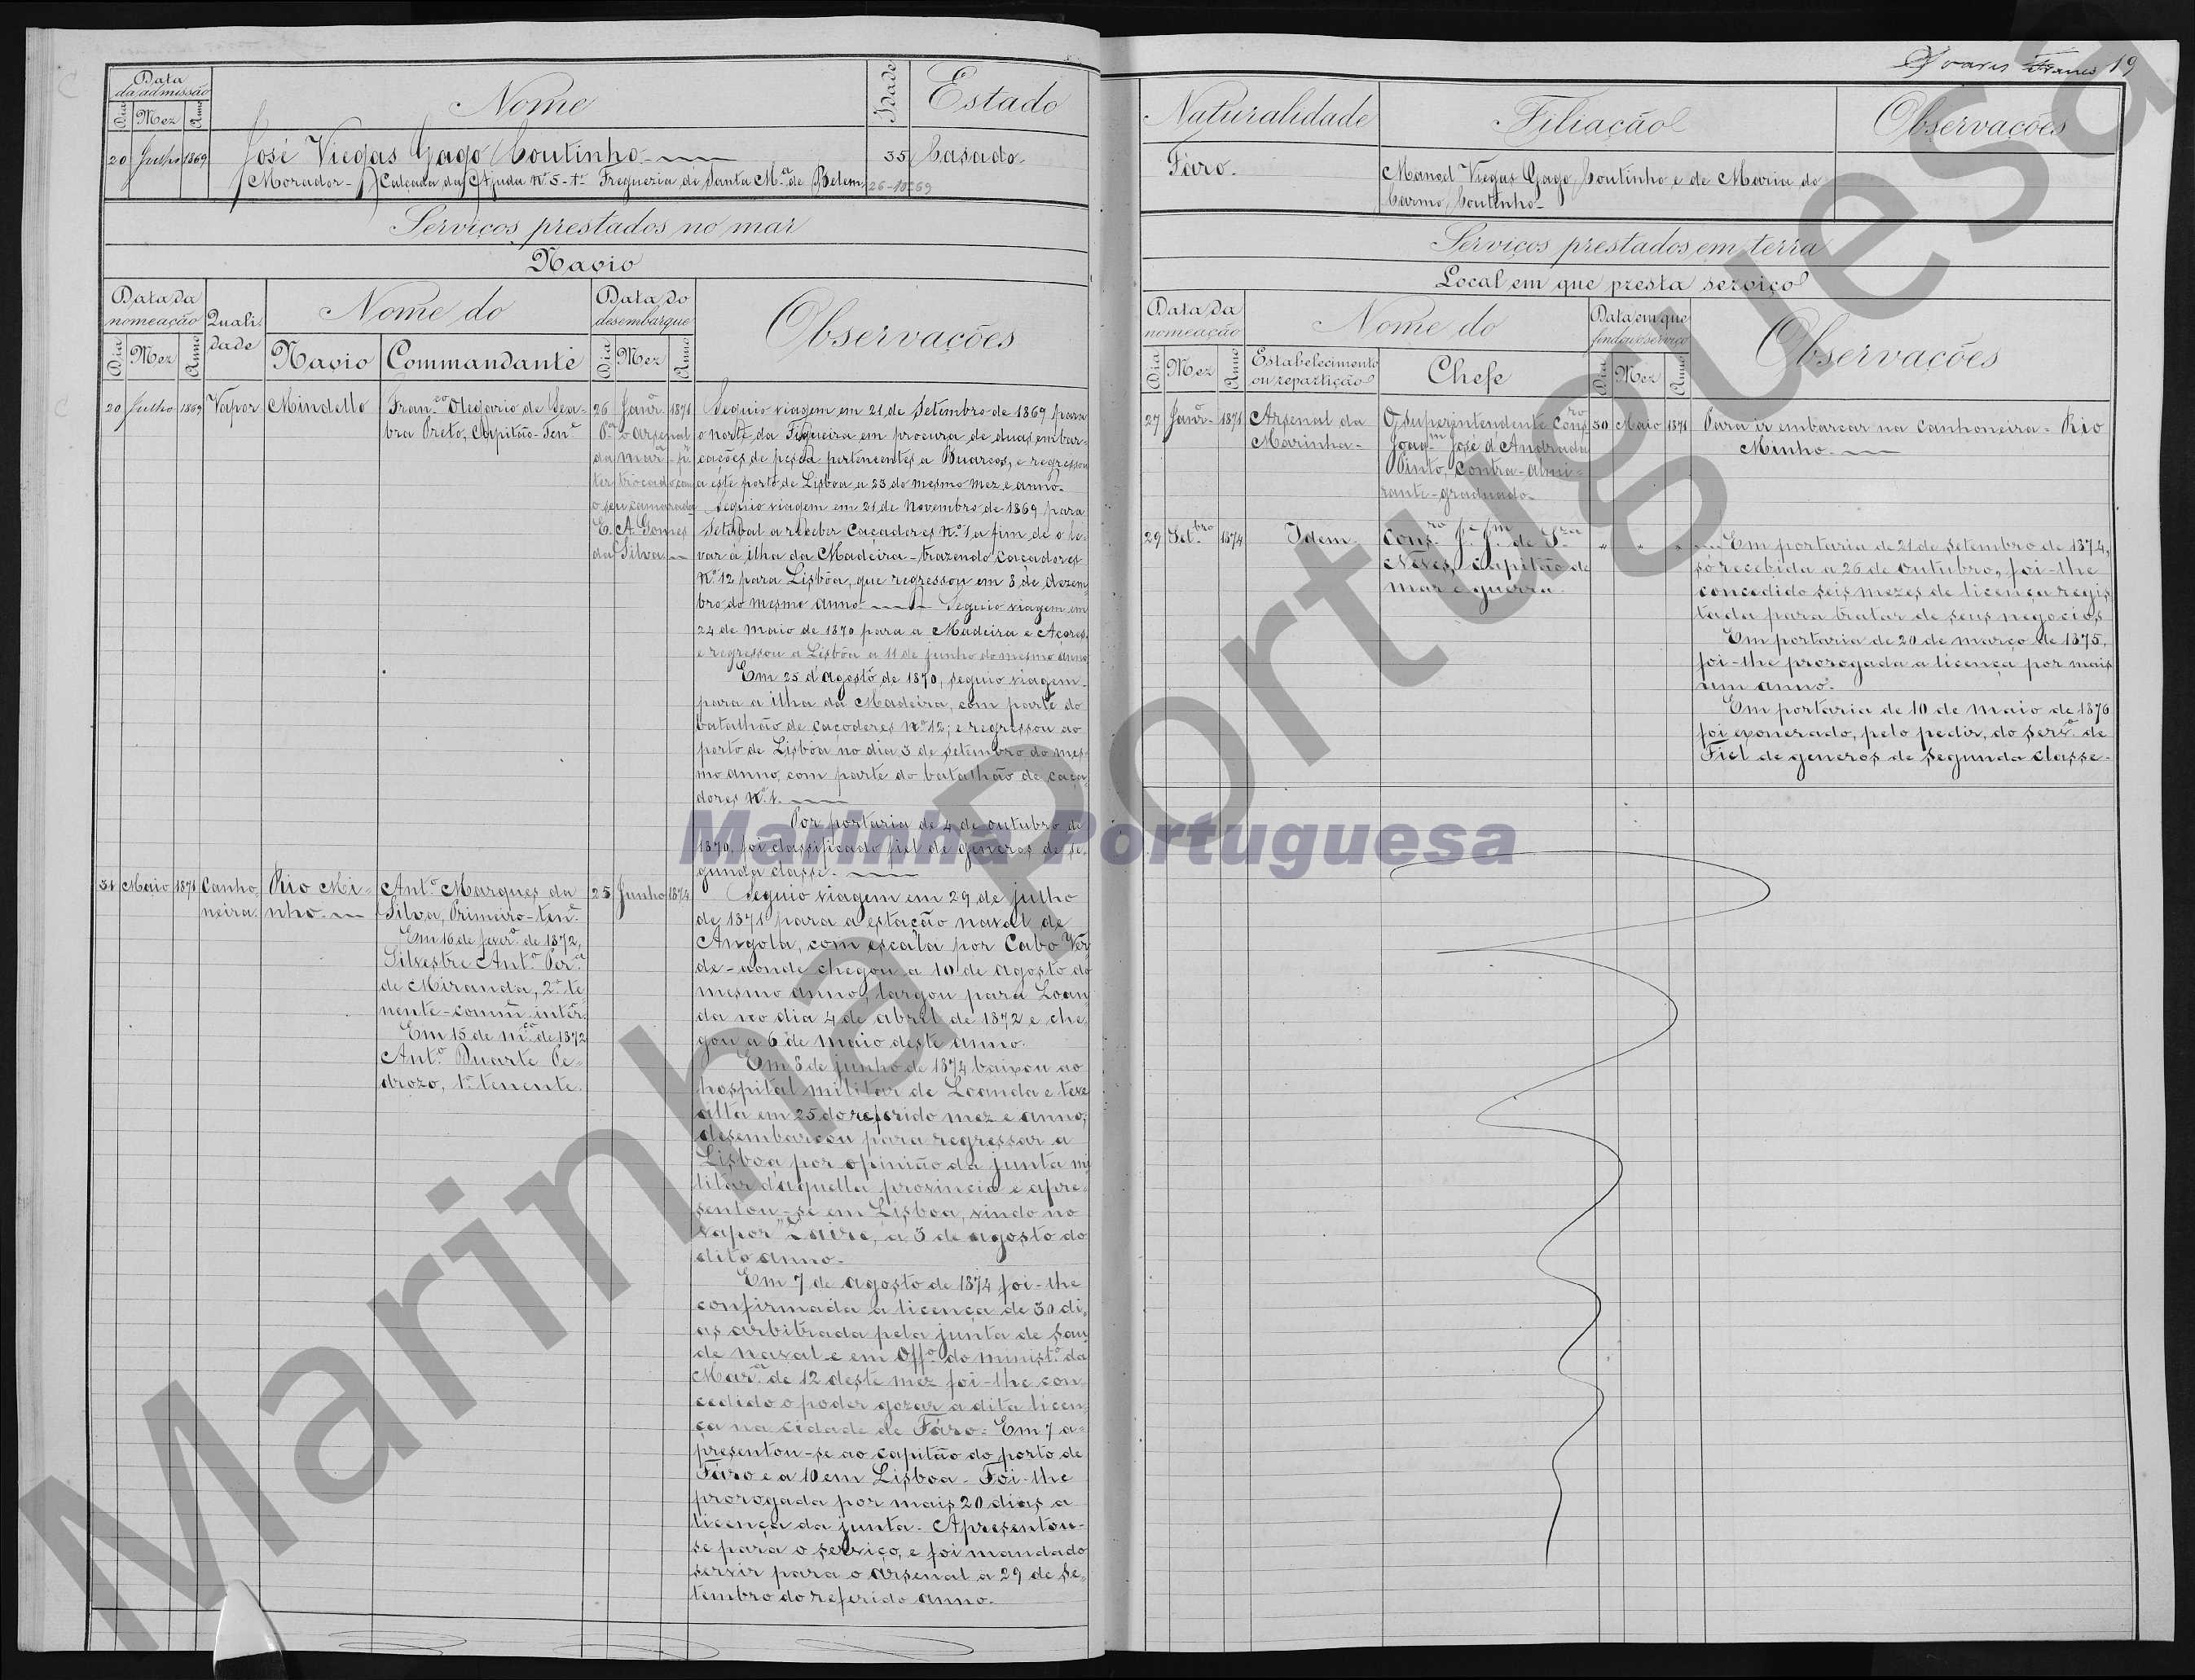 Data
da admissão
Dia
Mez
Anno
Nome
Idade
Estado
20
Julho
1869
José Viegas Gago Coutinho
35
Casado
Morador - Calçada da Ajuda Nº 5 - 1º Freguezia de Santa M.ª de Belem
26-10-69
Serviços prestados no mar
Navio
Data da
nomeação
Quali
dade
Nome do
Data do
desembarque
Observações
Dia
Mez
Anno
Navio
Commandante
Dia
Mez
Anno
20
Julho
1869
Vapor
Mindello
Fran.co Olegario de Sea-
bra Preto, Capitão-Ten.e
26
Janr.º
1871
P.ª o arsenal
da mar.ª - p.r
ter trocado com
o seu camarada
E. A. Gomes
da Silva
Seguio viagem em 21 de Setembro de 1869 para
o norte da Figueira em procura de duas embar-
cações de pesca pertencentes a Buarcos, e regressou
a este porto de Lisboa a 23 do mesmo mez e anno.
Seguio viagem em 21 de Novembro de 1869 para
Setubal a receber Caçadores Nº 1 a fim de o le-
var á ilha da Madeira - trazendo caçadores
Nº 12 para Lisbôa, que regressou em 8 de dezem
bro do mesmo anno Seguio viagem em
24 de maio de 1870 para a Madeira e Açores
e regressou a Lisbôa a 11 de junho do mesmo anno
Em 25 d'agosto de 1870, seguio viagem
para a ilha da Madeira, com parte do
batalhão de caçodores Nº 12; e regressou ao
porto de Lisbôa no dia 3 de setembro do mes-
mo anno, com parte do batalhão de caça-
dores Nº 1.
Por portaria de 4 de outubro de
1870, foi classificado fiel de generos de se-
gunda classe.
31
Maio
1871
Canho
neira
Rio Mi-
nho.
Ant.º Marques da
Silva, Primeiro-ten.e
Em 16 de fever.º de 1872,
Silvestre Ant.º Per.ª
de Miranda, 2º te
nente-comm. inter.
Em 15 de m.ço de 1872
Ant.º Duarte Pe-
drozo, 1º tenente.
25
Junho
1874
Seguio viagem em 29 de julho
de 1871 para a estação naval de
Angola, com escala por Cabo Ver
de - aonde chegou a 10 de agosto do
mesmo anno, largou para Loan
da no dia 4 de abril de 1872 e che
gou a 6 de maio deste anno.
Em 8 de junho de 1874 baixou ao
hospital militar de Loanda e teve
alta em 25 do referido mez e anno,
desembarcou para regressar a
Lisboa por opinião da junta mi
litar d'aquella provincia e apre-
sentou-se em Lisboa, vindo no
vapor "Zaire", a 3 de agosto do
dito anno.
Em 7 de agosto de 1874 foi-lhe
confirmada a licença de 30 di-
as arbitrada pela junta de sau
de naval e em Off.º do minist.º da
Mar.ª de 12 deste mez foi-lhe con-
cedido o poder gozar a dita licen
ça na cidade de Fáro. Em 7 a-
presentou-se ao capitão do porto de
Fáro e a 10 em Lisboa - Foi-lhe
prorogada por mais 20 dias a
licença da junta. Apresentou-
se para o serviço, e foi mandado
servir para o arsenal a 29 de se-
tembro do referido anno.
Soares Franco 19
Naturalidade
Filiação
Observações
Fáro.
Manoel Viegas Gago Coutinho e de Maria do
Carmo Coutinho
Serviços prestados em terra
Local em que presta serviço
Data da
nomeação
Nome do
Data em que
finda o serviço
Observações
Dia
Mez
Anno
Estabelecimento
ou repartição
Chefe
Dia
Mez
Anno
27
Janr.º
1871
Arsenal da
Marinha
O superintendente Cons.ro
Joaq.m José d'Andrade
Pinto, contra-almi-
rante-graduado.
30
Maio
1871
Para ir embarcar na Canhoneira - Rio
Minho.
29
Set.bro
1874
Idem
Neves, capitão de
mar e guerra.
" " "
Em portaria de 21 de setembro de 1874,
só recebida a 26 de outubro, foi-lhe
concedido seis mezes de licença regis
tada para tratar de seus negocios.
Em portaria de 20 de março de 1875,
foi-lhe prorogada a licença por mais
um anno.
Em portaria de 10 de maio de 1876
foi exonerado, pelo pedir, do serv.º de
Fiel de generos de segunda classe.
Marinha Portuguesa
Marinha Portuguesa